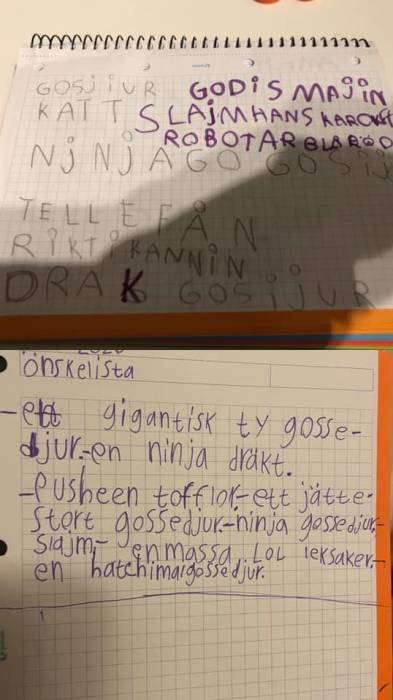 GOSjiUR GODiSMAjiN
KATT SLAjMHANSKAROVST
ROBOTAR BLARÖD
NjNjAGO GOSij
TELLEFÅN
RiKTiKANNiN
DRAK GOSijUR
önskelista
-ett gigantisk ty gosse-
djur.-en ninja dräkt.
-Pusheen tofflor.-ett jätte-
stort gossedjur.-ninja gossedjur.-
slajm,- en massa LOL leksaker.-
en hatchimalgossedjur.
1